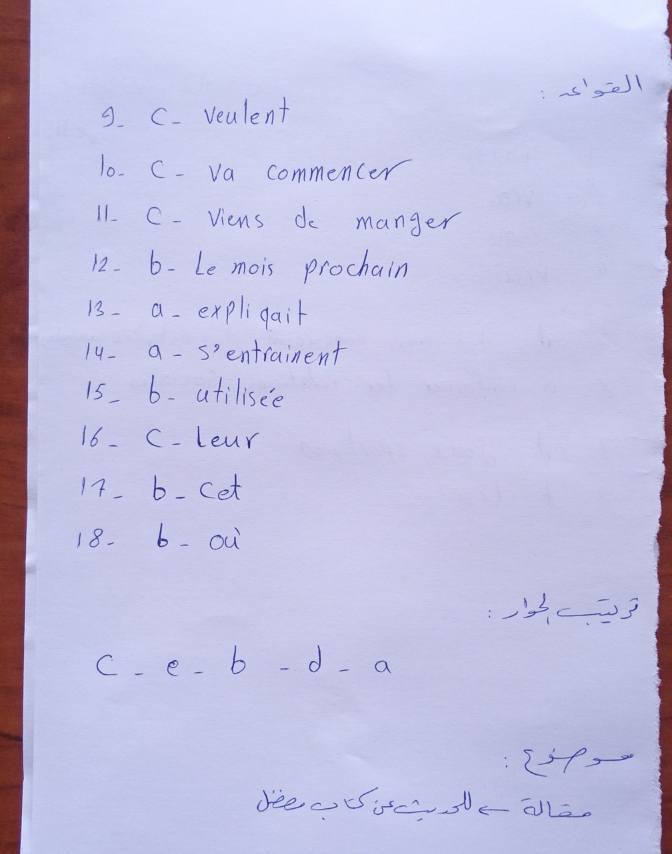 القواعد :
9- C- veulent
10- C- va commencer
11- C- viens de manger
12- b- Le mois prochain
13- a- expliqait
14- a- s'entrainent
15- b- utilisée
16- C- Leur
17- b- Cet
18- b- où
ترتيب الحوار :
C - e - b - d - a
موضوع :
مقالة ← للحديث عن كتاب مفضل